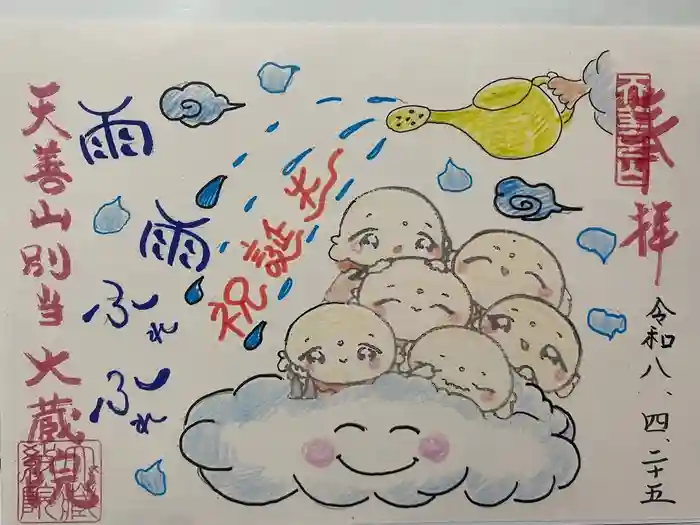 奉拝
令和八、四、二十五
祝誕生
雨
雨
ふれ
ふれ
天善山別当大蔵院